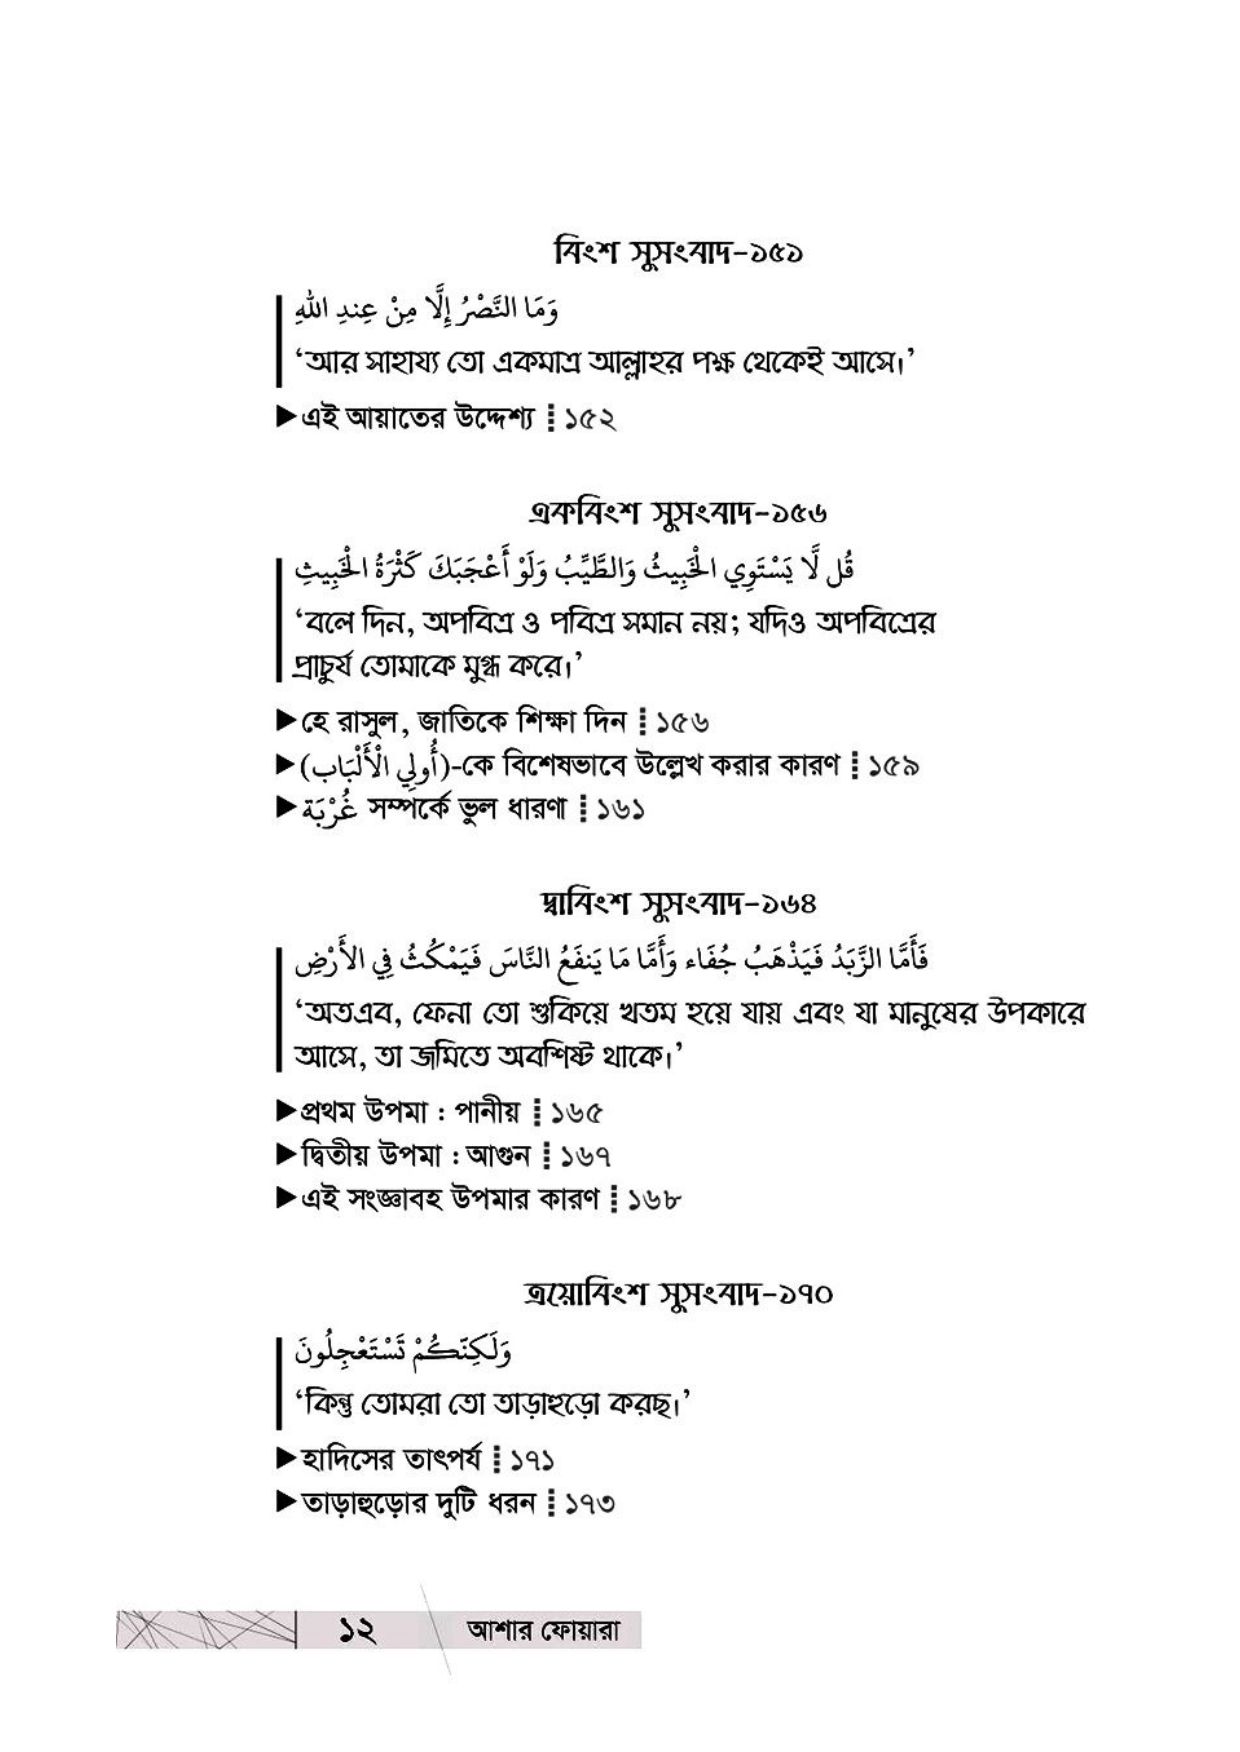 বিংশ সুসংবাদ-১৫১
وَمَا النَّصْرُ إِلَّا مِنْ عِندِ اللهِ
‘আর সাহায্য তো একমাত্র আল্লাহর পক্ষ থেকেই আসে।’
▶এই আয়াতের উদ্দেশ্য ⁞ ১৫২
একবিংশ সুসংবাদ-১৫৬
قُل لَّا يَسْتَوِي الْخَبِيثُ وَالطَّيِّبُ وَلَوْ أَعْجَبَكَ كَثْرَةُ الْخَبِيثِ
‘বলে দিন, অপবিত্র ও পবিত্র সমান নয়; যদিও অপবিত্রের
প্রাচুর্য তোমাকে মুগ্ধ করে।’
▶হে রাসুল, জাতিকে শিক্ষা দিন ⁞ ১৫৬
▶(أُولِي الْأَلْبَاب)-কে বিশেষভাবে উল্লেখ করার কারণ ⁞ ১৫৯
▶غُرْبَة সম্পর্কে ভুল ধারণা ⁞ ১৬১
দ্বাবিংশ সুসংবাদ-১৬৪
فَأَمَّا الزَّبَدُ فَيَذْهَبُ جُفَاء وَأَمَّا مَا يَنفَعُ النَّاسَ فَيَمْكُثُ فِي الأَرْضِ
‘অতএব, ফেনা তো শুকিয়ে খতম হয়ে যায় এবং যা মানুষের উপকারে
আসে, তা জমিতে অবশিষ্ট থাকে।’
▶প্রথম উপমা : পানীয় ⁞ ১৬৫
▶দ্বিতীয় উপমা : আগুন ⁞ ১৬৭
▶এই সংজ্ঞাবহ উপমার কারণ ⁞ ১৬৮
ত্রয়োবিংশ সুসংবাদ-১৭০
وَلَكِنَّكُمْ تَسْتَعْجِلُونَ
‘কিন্তু তোমরা তো তাড়াহুড়ো করছ।’
▶হাদিসের তাৎপর্য ⁞ ১৭১
▶তাড়াহুড়োর দুটি ধরন ⁞ ১৭৩
১২ আশার ফোয়ারা